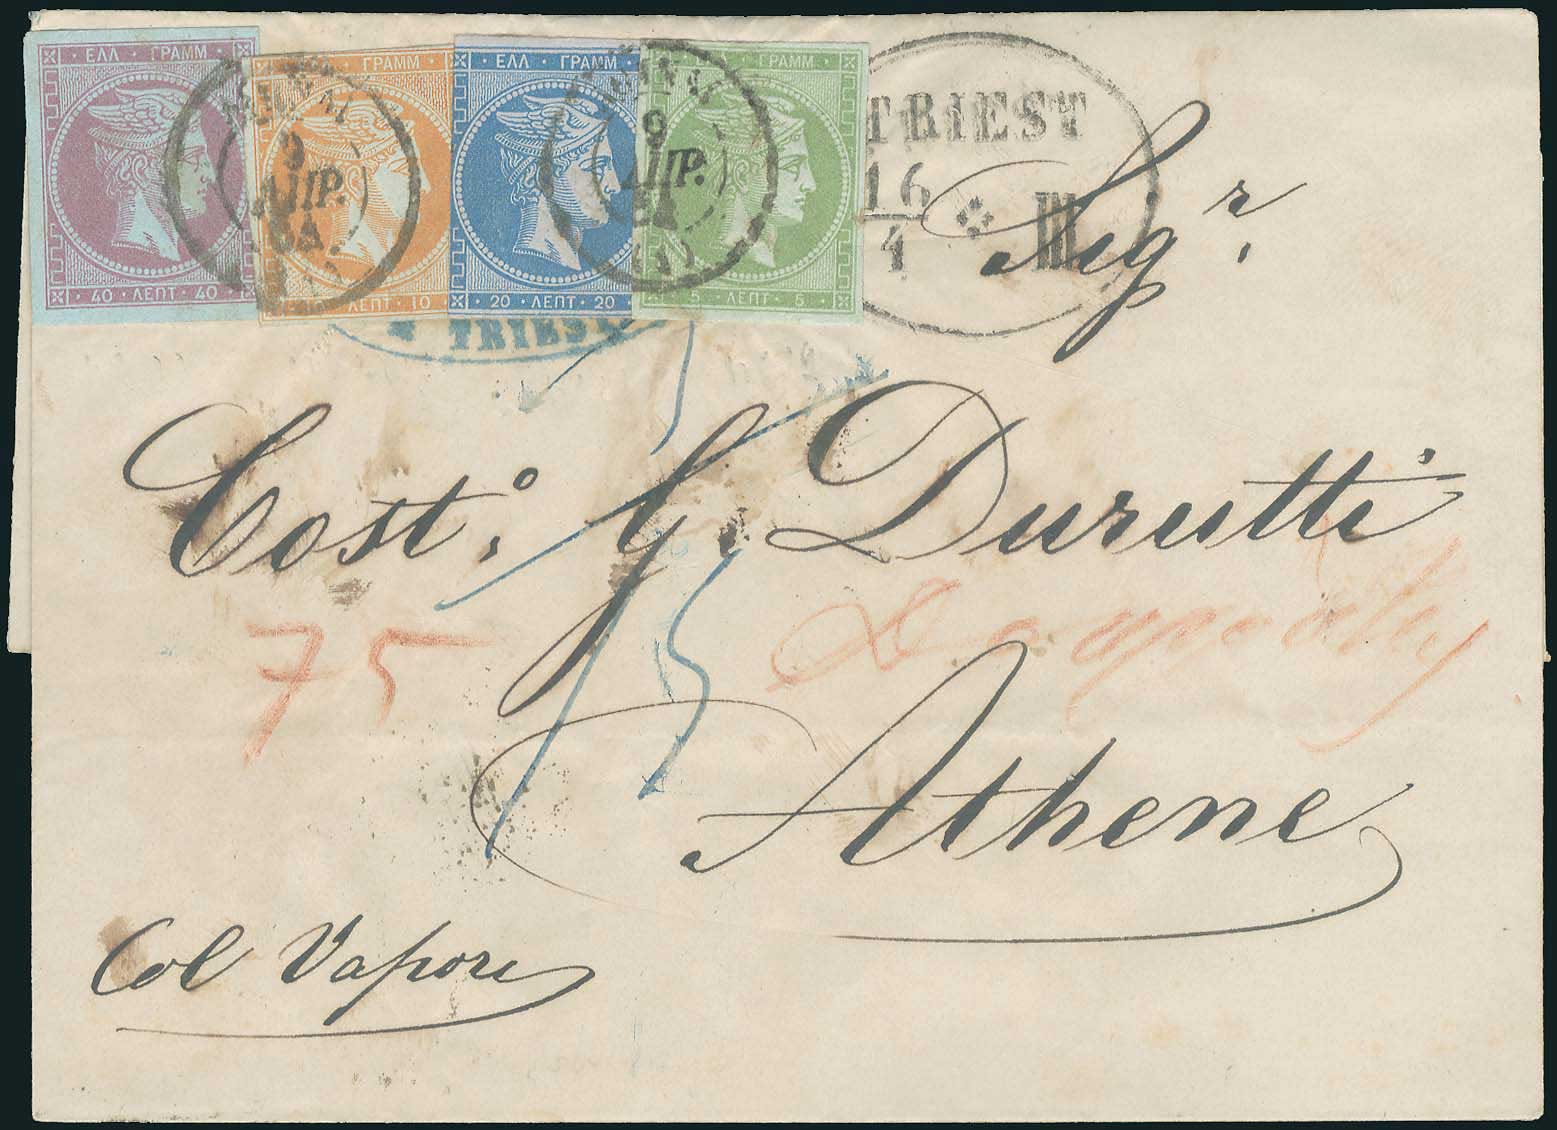 ΕΛΛ · ΓΡΑΜΜ
ΓΡΑΜΜ
ΕΛΛ · ΓΡΑΜΜ
ΓΡΑΜΜ
40 · ΛΕΠΤ · 40
ΛΕΠΤ · 10
20 · ΛΕΠΤ · 20
5 · ΛΕΠΤ · 5
9
ΑΠΡ.
9
ΑΠΡ.
TRIEST
16
4
III
TRIEST
Sigr.
Costo. G. Durutti
75
15
Athene
Col Vapore